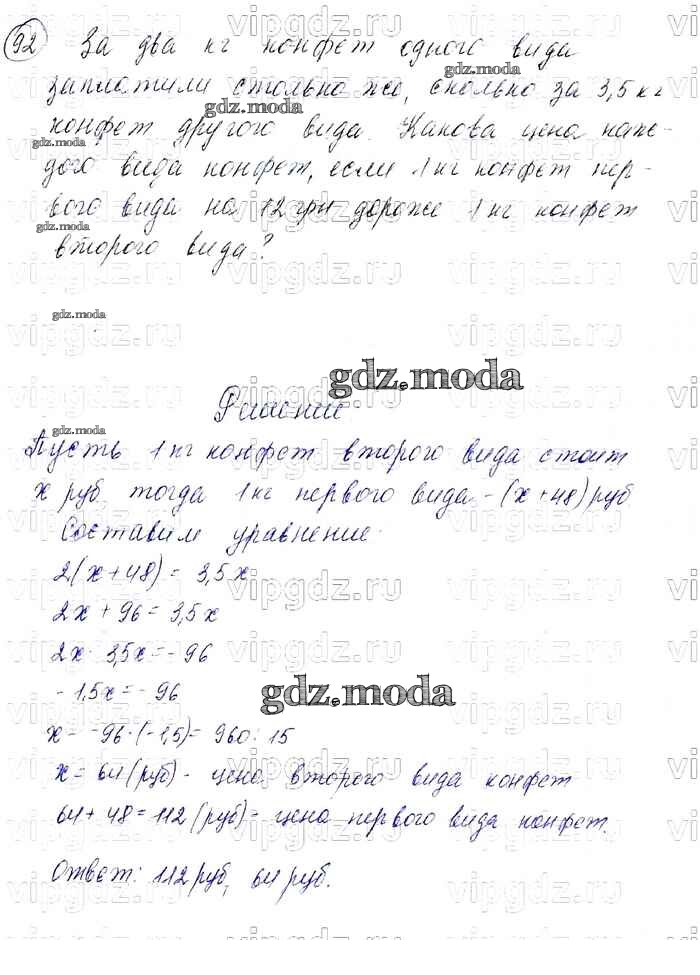 92 За два кг конфет одного вида
заплатили столько же, сколько за 3,5 кг
конфет другого вида. Какова цена каж-
дого вида конфет, если 1 кг конфет пер-
вого вида на 12 грн дороже 1 кг конфет
второго вида?
Решение
Пусть 1 кг конфет второго вида стоит
х руб тогда 1 кг первого вида - (х+48) руб
Составим уравнение:
2(х+48) = 3,5х
2х + 96 = 3,5х
2х - 3,5х = - 96
- 1,5х = - 96
х = -96 · (-1,5) = 960 : 15
х = 64 (руб) - цена второго вида конфет
64 + 48 = 112 (руб) - цена первого вида конфет.
Ответ: 112 руб, 64 руб.
gdz.moda
vipgdz.ru